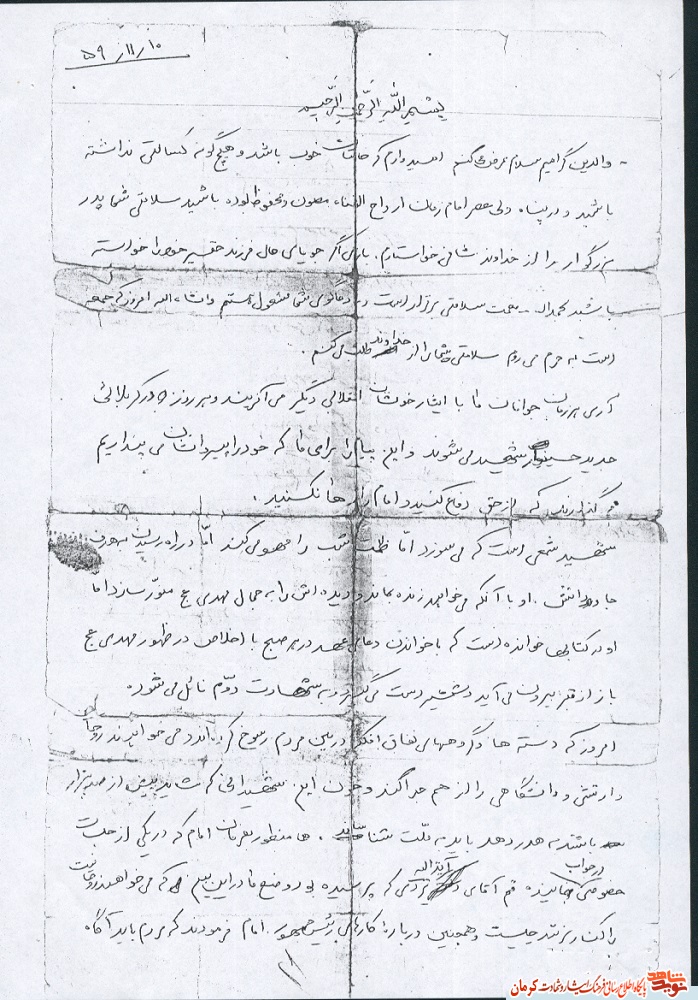 ۵۹/۱۱/۱۰
بسم الله الرحمن الرحیم
- والدین گرامیم سلام عرض می کنم امیدوارم که حالتان خوب باشد و هیچ گونه کسالتی نداشته
باشید و در پناه ولی عصر امام زمان ارواح الفداه مصون و محفوظ بوده باشید سلامتی شما پدر
بزرگوار را از خداوند شافی خواستارم. باری اگر جویای حال فرزند حقیر خود را خواسته
باشید بحمدالله نعمت سلامتی برقرار است و به دعاگوی شما مشغول هستم و انشاءالله امروز که جمعه
است به حرم می روم سلامتی شما را از خداوند طلب می کنم.
آری هر زمان جوانان ما با ایثار خونشان انقلابی دیگر می آفرینند و هر روز در کربلائی
جدید حسینوار شهید می شوند و این پیام را برای ما که خود را پیرو آنان می پنداریم
می گذارند که از حق دفاع کنید و امام را رها نکنید.
شهید شمعی است که می سوزد اما ظلمت شب را محو می کند اما در راه رسیدن به هدف
جاودانش. او با آنکه می خواهد زنده بماند و دیده اش را به جمال مهدی عج منور سازد اما
او در کتابها خوانده است که با خواندن دعای عهد در هر صبح با اخلاص در ظهور مهدی عج
باز از قبر بیرون می آید و شمشیر بدست می گیرد و به شهادت دوم نائل می شود.
امروز که دسته ها و گروههای نفاق افکن در بین مردم رسوخ کرده اند و می خواهند روحانی
و ارتشی و دانشگاهی را از هم جدا کنند و خون این شهیدانی که شاید بیش از صد هزار
باشند به هدر دهد باید به ملت شناساند. همانطور بفرمان امام که در یکی از جلسات
خصوصی در جواب نماینده قم آقای آیةالله یزدی که پرسیده بود وضع ما در این بین که می خواهند روحانیت
را کنار بزنند چیست و همچنین درباره کارهای رئیس جمهور امام فرمودند که مردم باید آگاه
۱
نوید شاهد
پایگاه اطلاع رسانی فرهنگ ایثار و شهادت کرمان